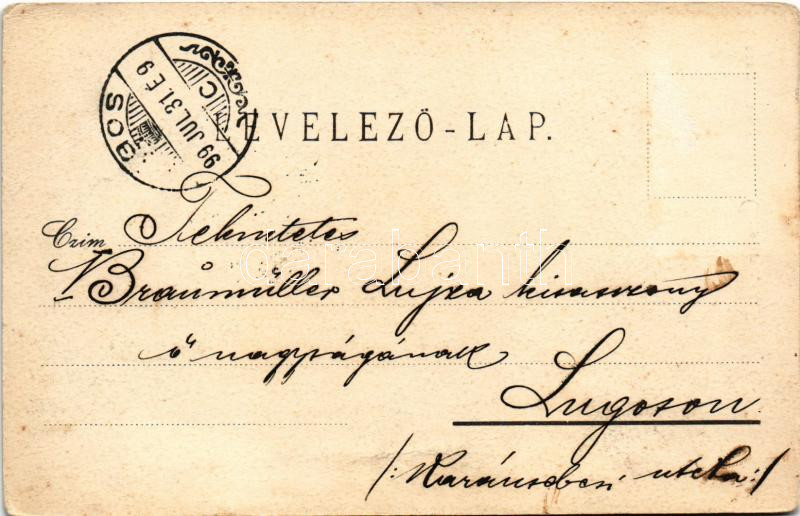 LEVELEZŐ-LAP.
99 JUL. 31. E 9
Czim Tekintetes
Braumüller Lujza kisasszony
ő nagyságának
Lugoson
/: Karánsebesi utcza :/
darabanth